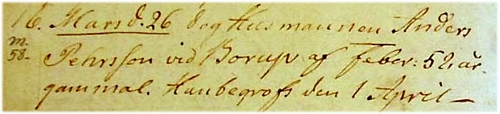 16. Mars d. 26 dog Husmannen Anders
m.
58. Pehrsson vid Borup af Feber: 52 år
gammal. Han begrofs den 1 April